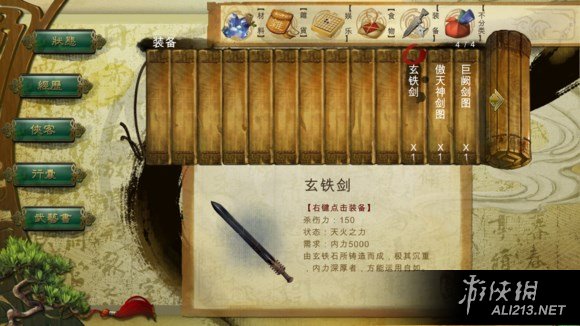 材料
雜貨
娱乐
食物
装备
不分类
装备
4 / 4
狀態
經歷
俠客
行囊
武藝書
玄铁剑
X
1
傲天神剑图
X
1
巨阙剑图
X
1
玄铁剑
【右键点击装备】
杀伤力：150
状态：天火之力
需求：内力5000
由玄铁石所铸造而成，极其沉重
，内力深厚者，方能运用自如。
游侠网
ALI213.NET